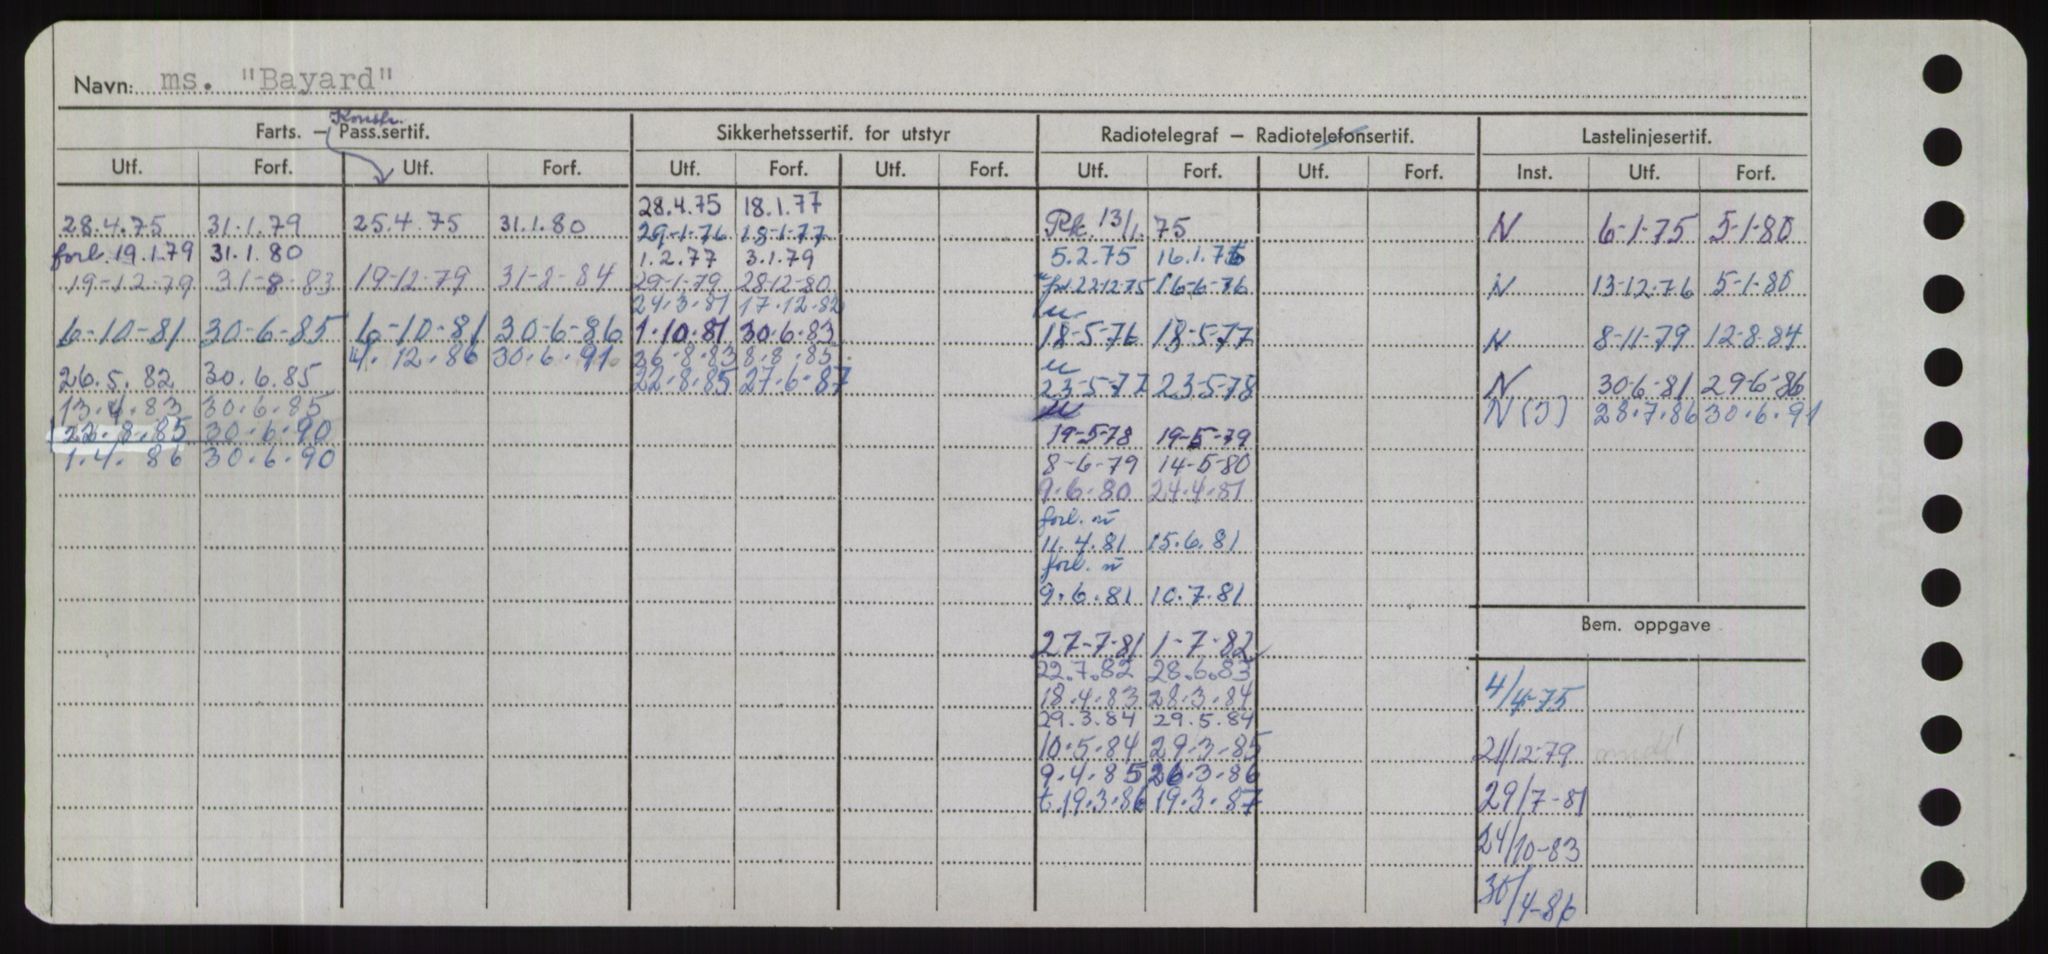 Navn: ms. "Bayard"
Konstr.
Farts. – Pass.sertif. Sikkerhetssertif. for utstyr Radiotelegraf – Radiotelefonsertif. Lastelinjesertif.
Utf. Forf. Utf. Forf. Utf. Forf. Utf. Forf. Utf. Forf. Utf. Forf. Inst. Utf. Forf.
28.4.75 31.1.79 25.4.75 31.1.80
forl. 19.1.79 31.1.80
19-12-79 31-8-83 19-12-79 31-8-84
6-10-81 30-6-85 6-10-81 30-6-86
4.12.86 30.6.91.
26.5.82 30.6.85
13.4.83 30.6.85
22.8.85 30.6.90
1.4.86 30.6.90
28.4.75 18.1.77
29-1-76 18-1-77
1.2.77 3.1.79
29-1-79 28-12-80
24.3.81 17.12.82
1.10.81 30.6.83
26.8.83 8.8.85.
22.8.85 27.6.87
13/1.75
5.2.75 16.1.76
22-12-75 16-6-76
18-5-76 18-5-77
23-5-77 23-5-78
19-5-78 19-5-79
8-6-79 14-5-80
9.6.80 24.4.81
forl. m
11.4.81 15.6.81
forl. m
9.6.81 10.7.81
27-7-81 1-7-82
22.7.82 28.6.83
18.4.83 28.3.84
29.3.84 29.5.84
10.5.84 29.3.85
9.4.85 26.3.86
t. 19.3.86 19.3.87
N 6-1-75 5-1-80
N 13-12-76 5-1-80
N 8-11-79 12-8-84
N 30-6-81 29-6-86
N (J) 28.7.86 30.6.91
Bem. oppgave
4/4-75
21/12-79
29/7-81
24/10-83
30/4-86